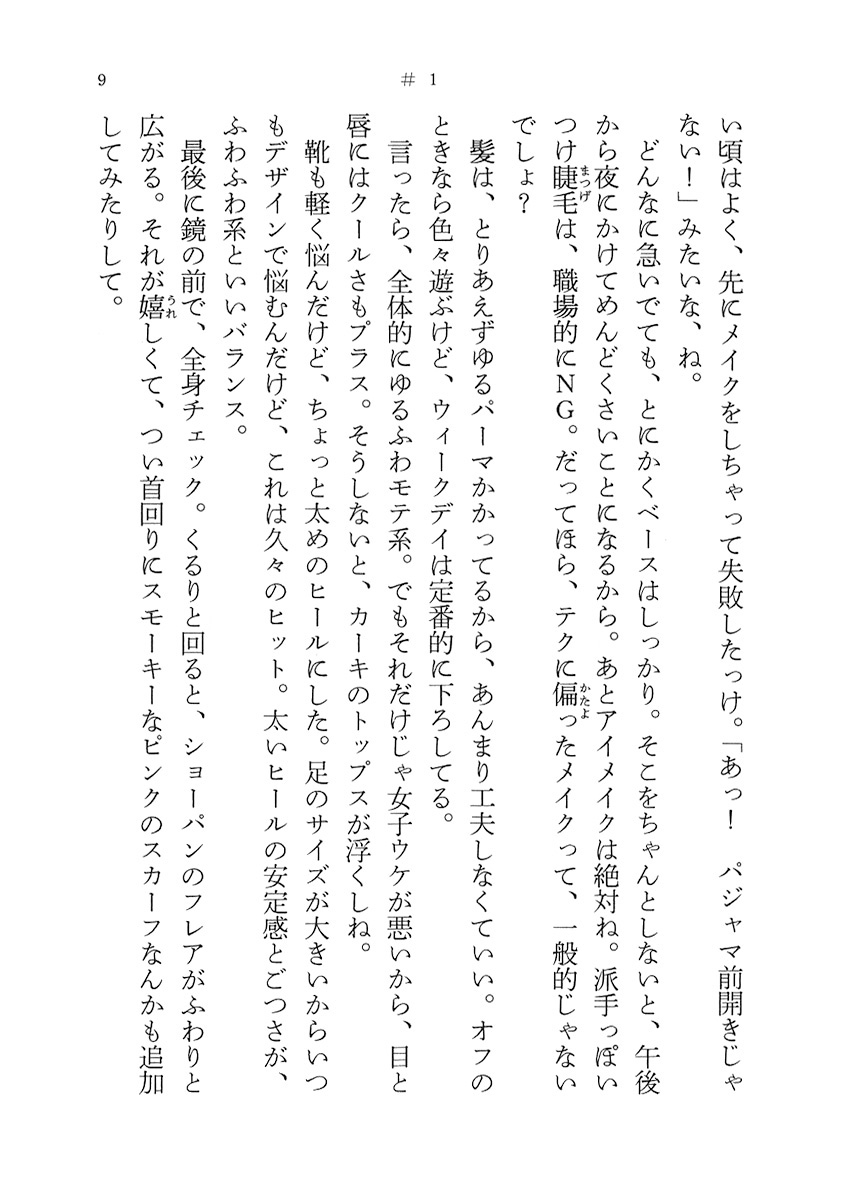 9
# 1
い頃はよく、先にメイクをしちゃって失敗したっけ。「あっ！　パジャマ前開きじゃ
ない！」みたいな、ね。
　どんなに急いでても、とにかくベースはしっかり。そこをちゃんとしないと、午後
から夜にかけてめんどくさいことになるから。あとアイメイクは絶対ね。派手っぽい
つけ睫毛は、職場的にNG。だってほら、テクに偏ったメイクって、一般的じゃない
まつげ
かたよ
でしょ？
　髪は、とりあえずゆるパーマかかってるから、あんまり工夫しなくていい。オフの
ときなら色々遊ぶけど、ウィークデイは定番的に下ろしてる。
　言ったら、全体的にゆるふわモテ系。でもそれだけじゃ女子ウケが悪いから、目と
唇にはクールさもプラス。そうしないと、カーキのトップスが浮くしね。
　靴も軽く悩んだけど、ちょっと太めのヒールにした。足のサイズが大きいからいつ
もデザインで悩むんだけど、これは久々のヒット。太いヒールの安定感とごつさが、
ふわふわ系といいバランス。
　最後に鏡の前で、全身チェック。くるりと回ると、ショーパンのフレアがふわりと
広がる。それが嬉しくて、つい首回りにスモーキーなピンクのスカーフなんかも追加
うれ
してみたりして。